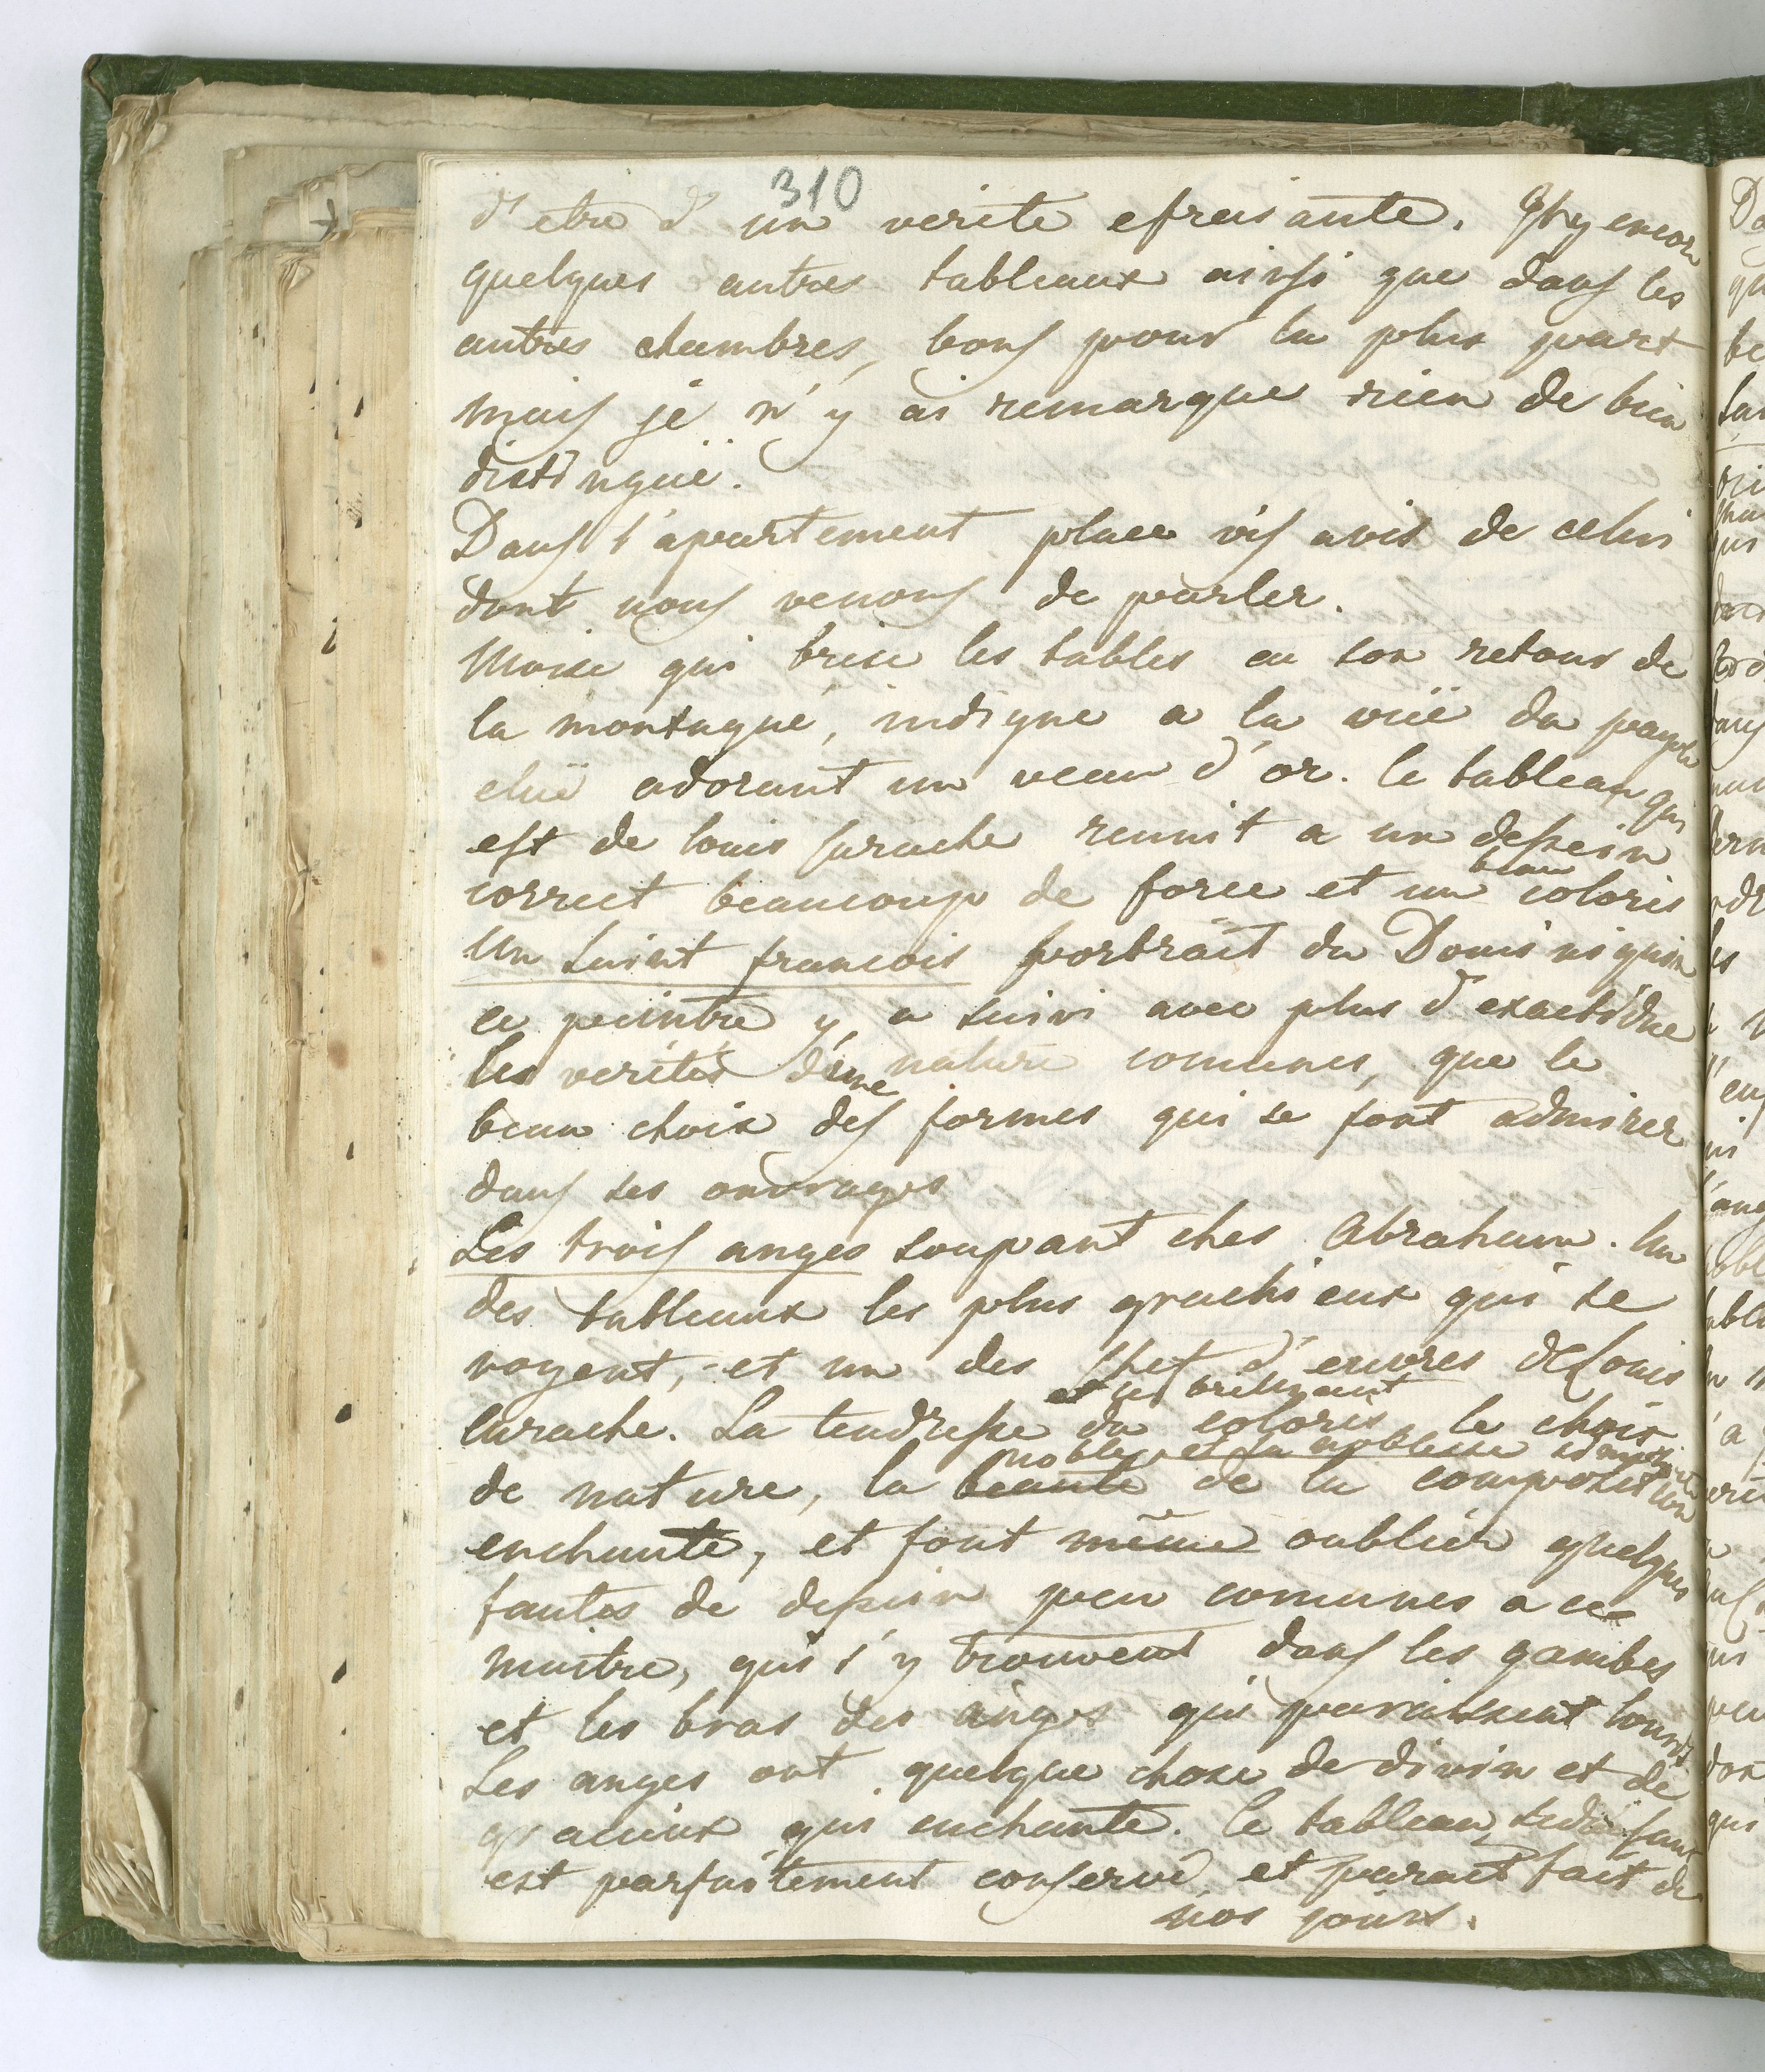 310
d'etre d'un verite efreisante. Il y encor
quelques autres tableaux ainsi que dans les
autres chambres, bons pour la plus part
mais je n'y ai remarque rien de bien
distinguë.
Dans l'apartement place vis avis de celui
dont nous venons de parler.
Moise qui brise les tables en son retour de
la montague, indigne a la vuë du peuple
eluë adorant un veau d'or. Ce tableau qui
est de Louis Carache reunit a un dessein
correct beaucoup de force et un beau coloris
Un Saint francois portrait du Dominiquin
ce peintre y a suivi avec plus d'exactidue
les verites d'une nature comunes, que le
beau choix des formes qui se font admirer
dans ses ouvrages
Les trois anges soupant ches Abraham. Un
des tableaux les plus grachieux qui se
voyent, et un des chef d'euvres de Louis
et le brillant
Carache. La tendresse du coloris, le choix
noblesse et la noblesse
de nature, la beaute de la composition
enchante, et font même oublier quelques
fautes de dessein peu comunes a ce
maitre, qui s'y trouvent dans les gambes
et les bras des anges qui paraissent lourds
Les anges ont quelque chose de divin et de
gracieux qui enchante. Ce tableau
est parfaitement conservé et parait fait de
nos jours.